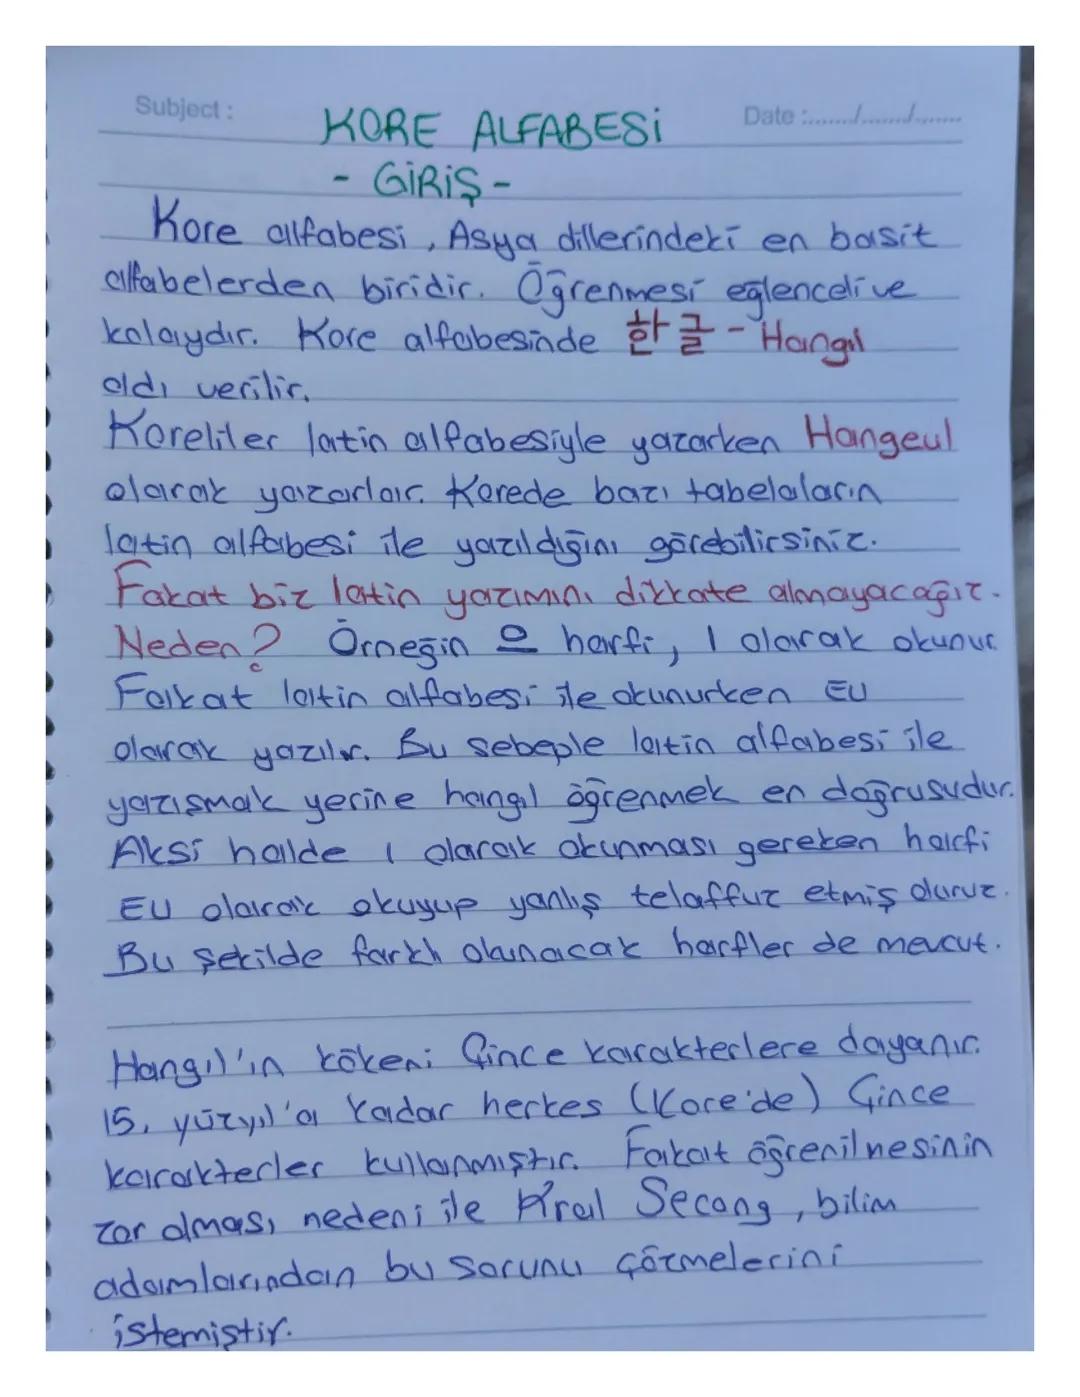 Subject :
KORE ALFABESİ
Date :......./......./.......
- GİRİŞ -
Kore alfabesi, Asya dillerindeki en basit
alfabelerden biridir. Öğrenmesi eğlenceli ve
kolaydır. Kore alfabesinde 한글 - Hangıl
adı verilir.
Koreliler latin alfabesiyle yazarken Hangeul
olarak yazarlar. Korede bazı tabelaların
latin alfabesi ile yazıldığını görebilirsiniz.
Fakat biz latin yazımını dikkate almayacağız.
Neden? Örneğin 으 harfi, I olarak okunur.
Fakat latin alfabesi ile okunurken EU
olarak yazılır. Bu sebeple latin alfabesi ile
yazışmak yerine hangıl öğrenmek en doğrusudur.
Aksi halde ı olarak okunması gereken harfi
EU olarak okuyup yanlış telaffuz etmiş oluruz.
Bu şekilde farklı okunacak harfler de mevcut.
Hangıl'ın kökeni Çince karakterlere dayanır.
15. yüzyıl'a kadar herkes (Kore'de) Çince
karakterler kullanmıştır. Fakat öğrenilmesinin
zor olması nedeni ile Kral Secong, bilim
adamlarından bu sorunu çözmelerini
istemiştir.